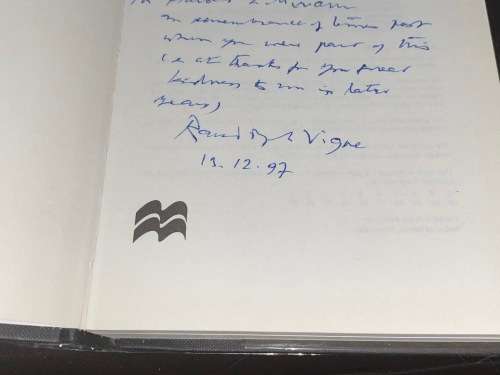 in remembrance of times past
when you were part of this
& thanks for your great
kindness to me in later
years)
Randolph Vigne
13.12.97